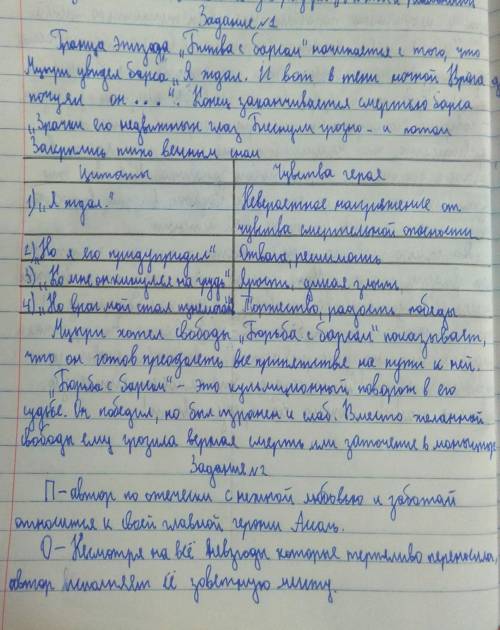 Задание №1
Граница эпизода „Битва с барсом" начинается с того, что
Мцыри увидел барса „Я ждал. И вот в тени ночной Врага
почуял он ...". Конец заканчивается смертью барса
„Зрачки его недвижных глаз Блеснули грозно - и потом
Закрылись тихо вечным сном
Цитаты Чувства героя
1) „Я ждал." Невероятное напряжение от
чувства смертельной опасности
2) „Но я его придупридил" Отвага, решимость
3) „Ко мне он кинулся на грудь" Ярость, дикая злость
4) „Но враг мой стал Торжество, радость победы
Мцыри хотел свободы „Борьба с барсом" показывает,
что он готов преодолеть все припетстве на пути к ней.
„Борьба с барсом" - это кульмиционный поворот в его
судьбе. Он победил, но был изранен и слаб. Вместо желанной
свободы ему грозила верная смерть или заточение в
Задание №2
П - автор по отечески с нежной любовью и заботой
относится к своей главной героини Ассоль.
О - Несмотря на всё невзгоды которые терпеливо переносила,
автор исполняет её заветную мечту.